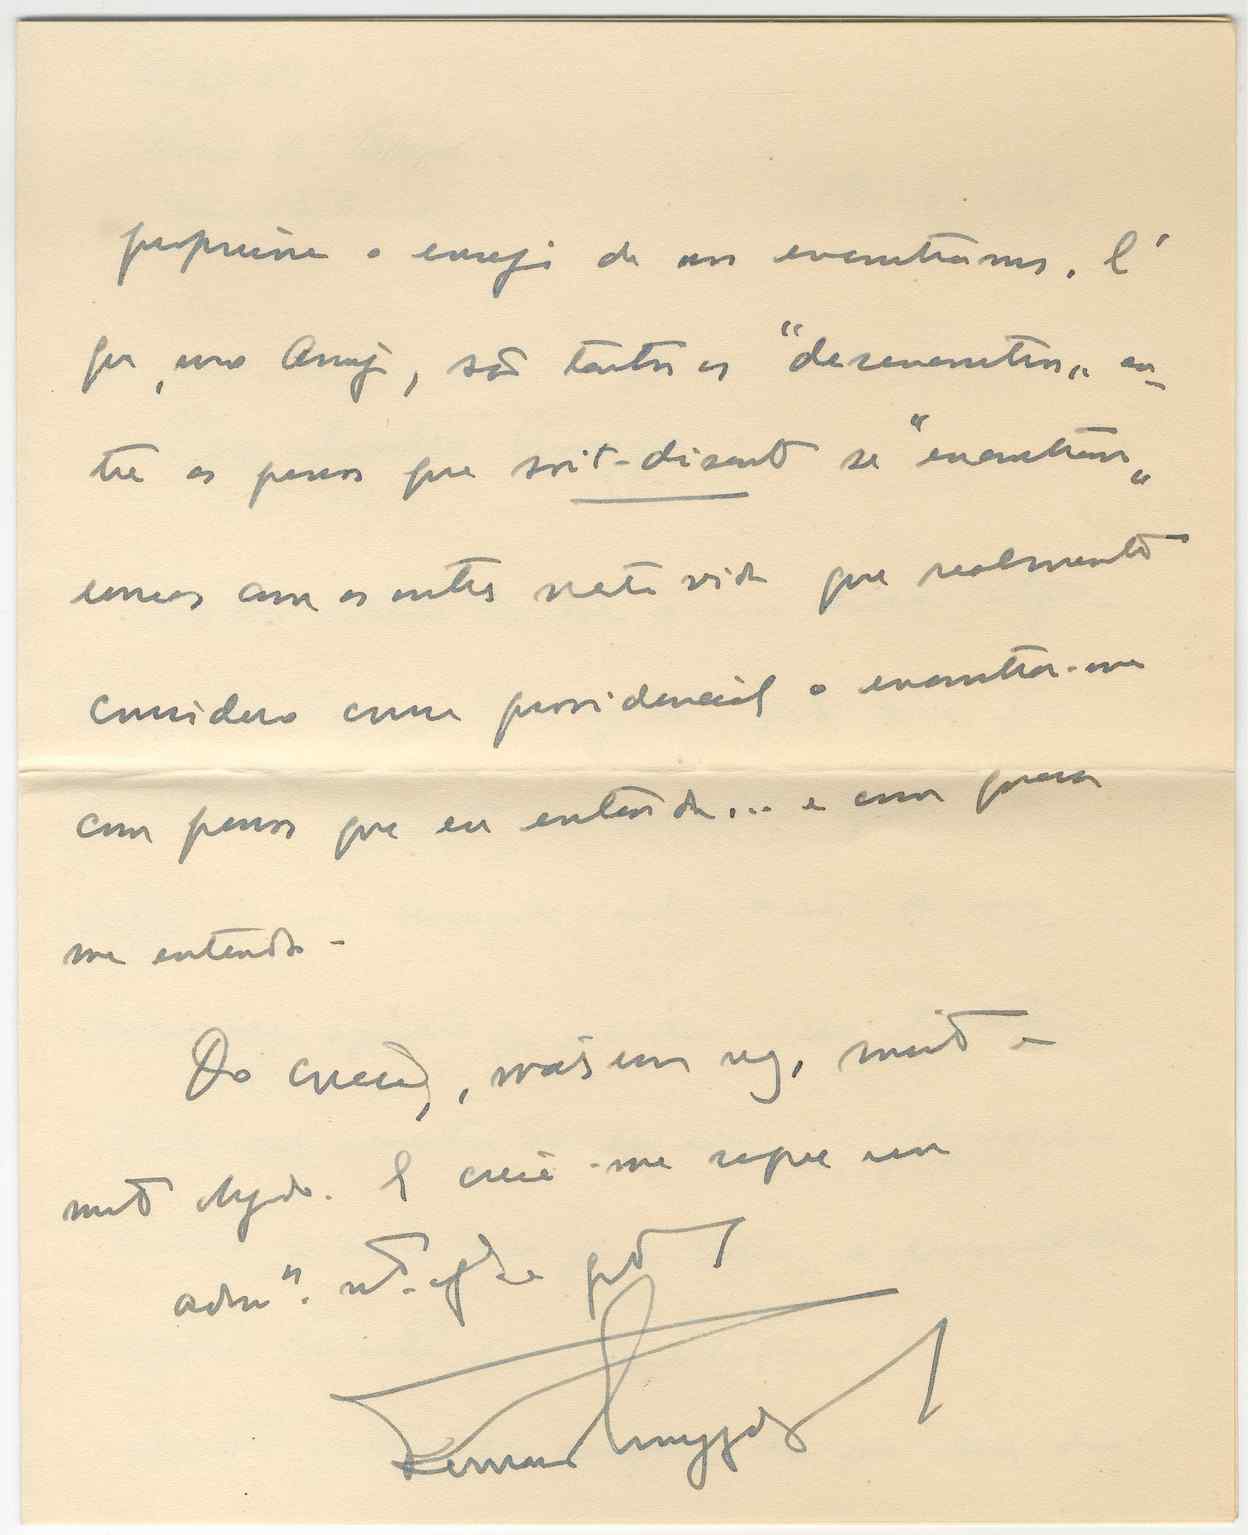 proporciona o ensejo de nos encontrarmos. É
que, meu Amigo, são tantos os "desencontros" en-
tre as pessoas que soit-disant se "encontram"
umas com as outras nesta vida que realmente
considero como providencial o encontrar-me
com pessoas que eu entenda... e com quem
me entenda -
Do coração, mais uma vez, muito e
muito obrigado. E creia-me sempre seu
adm.or